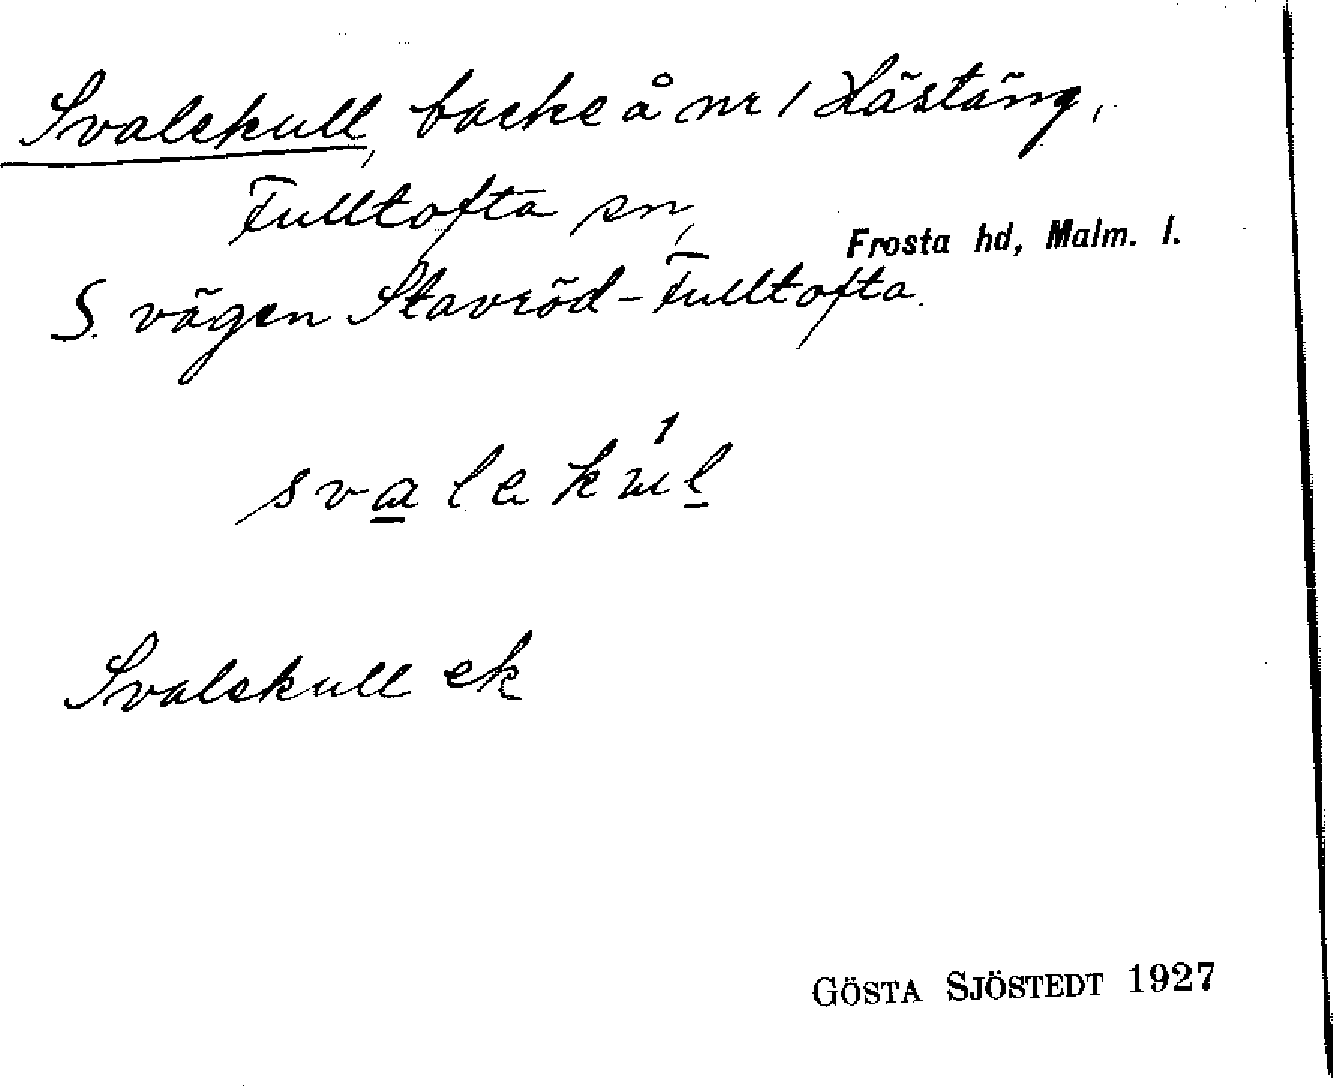 Svalekull, backe å nr 1 Hästäng,
Fulltofta sn,
Frosta hd, Malm. l.
S. vägen Stavröd - Fulltofta.
Svalekull ek
GÖSTA SJÖSTEDT 1927